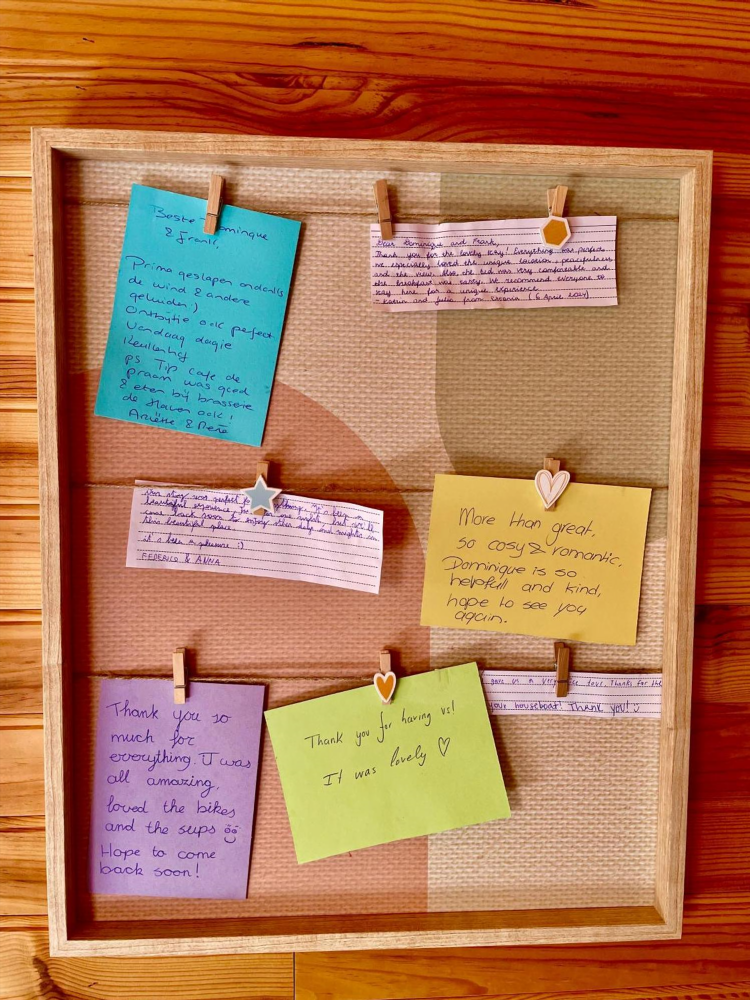 Beste Dominique
& Frank,
Prima geslapen ondanks
de wind & andere
geluiden!)
Ontbijtje ook perfect
Vandaag dagje
Keukenhof
ps Tip cafe de
praam was goed
& eten bij brasserie
de Haven ook!
Ariëtte & René
Dear Dominique and Frank,
Thank you for the lovely stay! Everything was perfect
we especially loved the unique location, peacefulness
and the view. Also, the bed was very comfortable and
the breakfast was tasty. We recommend everyone to
stay here for a unique experience.
Katrin and Julia from (6 April 2024)
Our stay was perfect
beautiful experience,
come back soon to enjoy
this beautiful place.
it's been a pleasure :)
FEDERICO & ANNA
More than great,
so cosy & romantic.
Dominique is so
helpfull and kind,
hope to see you
again.
Thank you so
much for
everything. It was
all amazing,
loved the bikes
and the sups
Hope to come
back soon!
Thank you for having us!
It was lovely ♡
gave us a very nice tour. Thanks for the
your houseboat! Thank you!